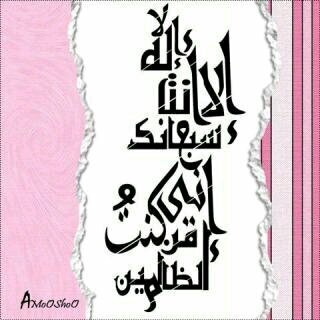 لا إله
إلا أنت
سبحانك
إني
كنتُ من
الظالمين
AMoOShoO